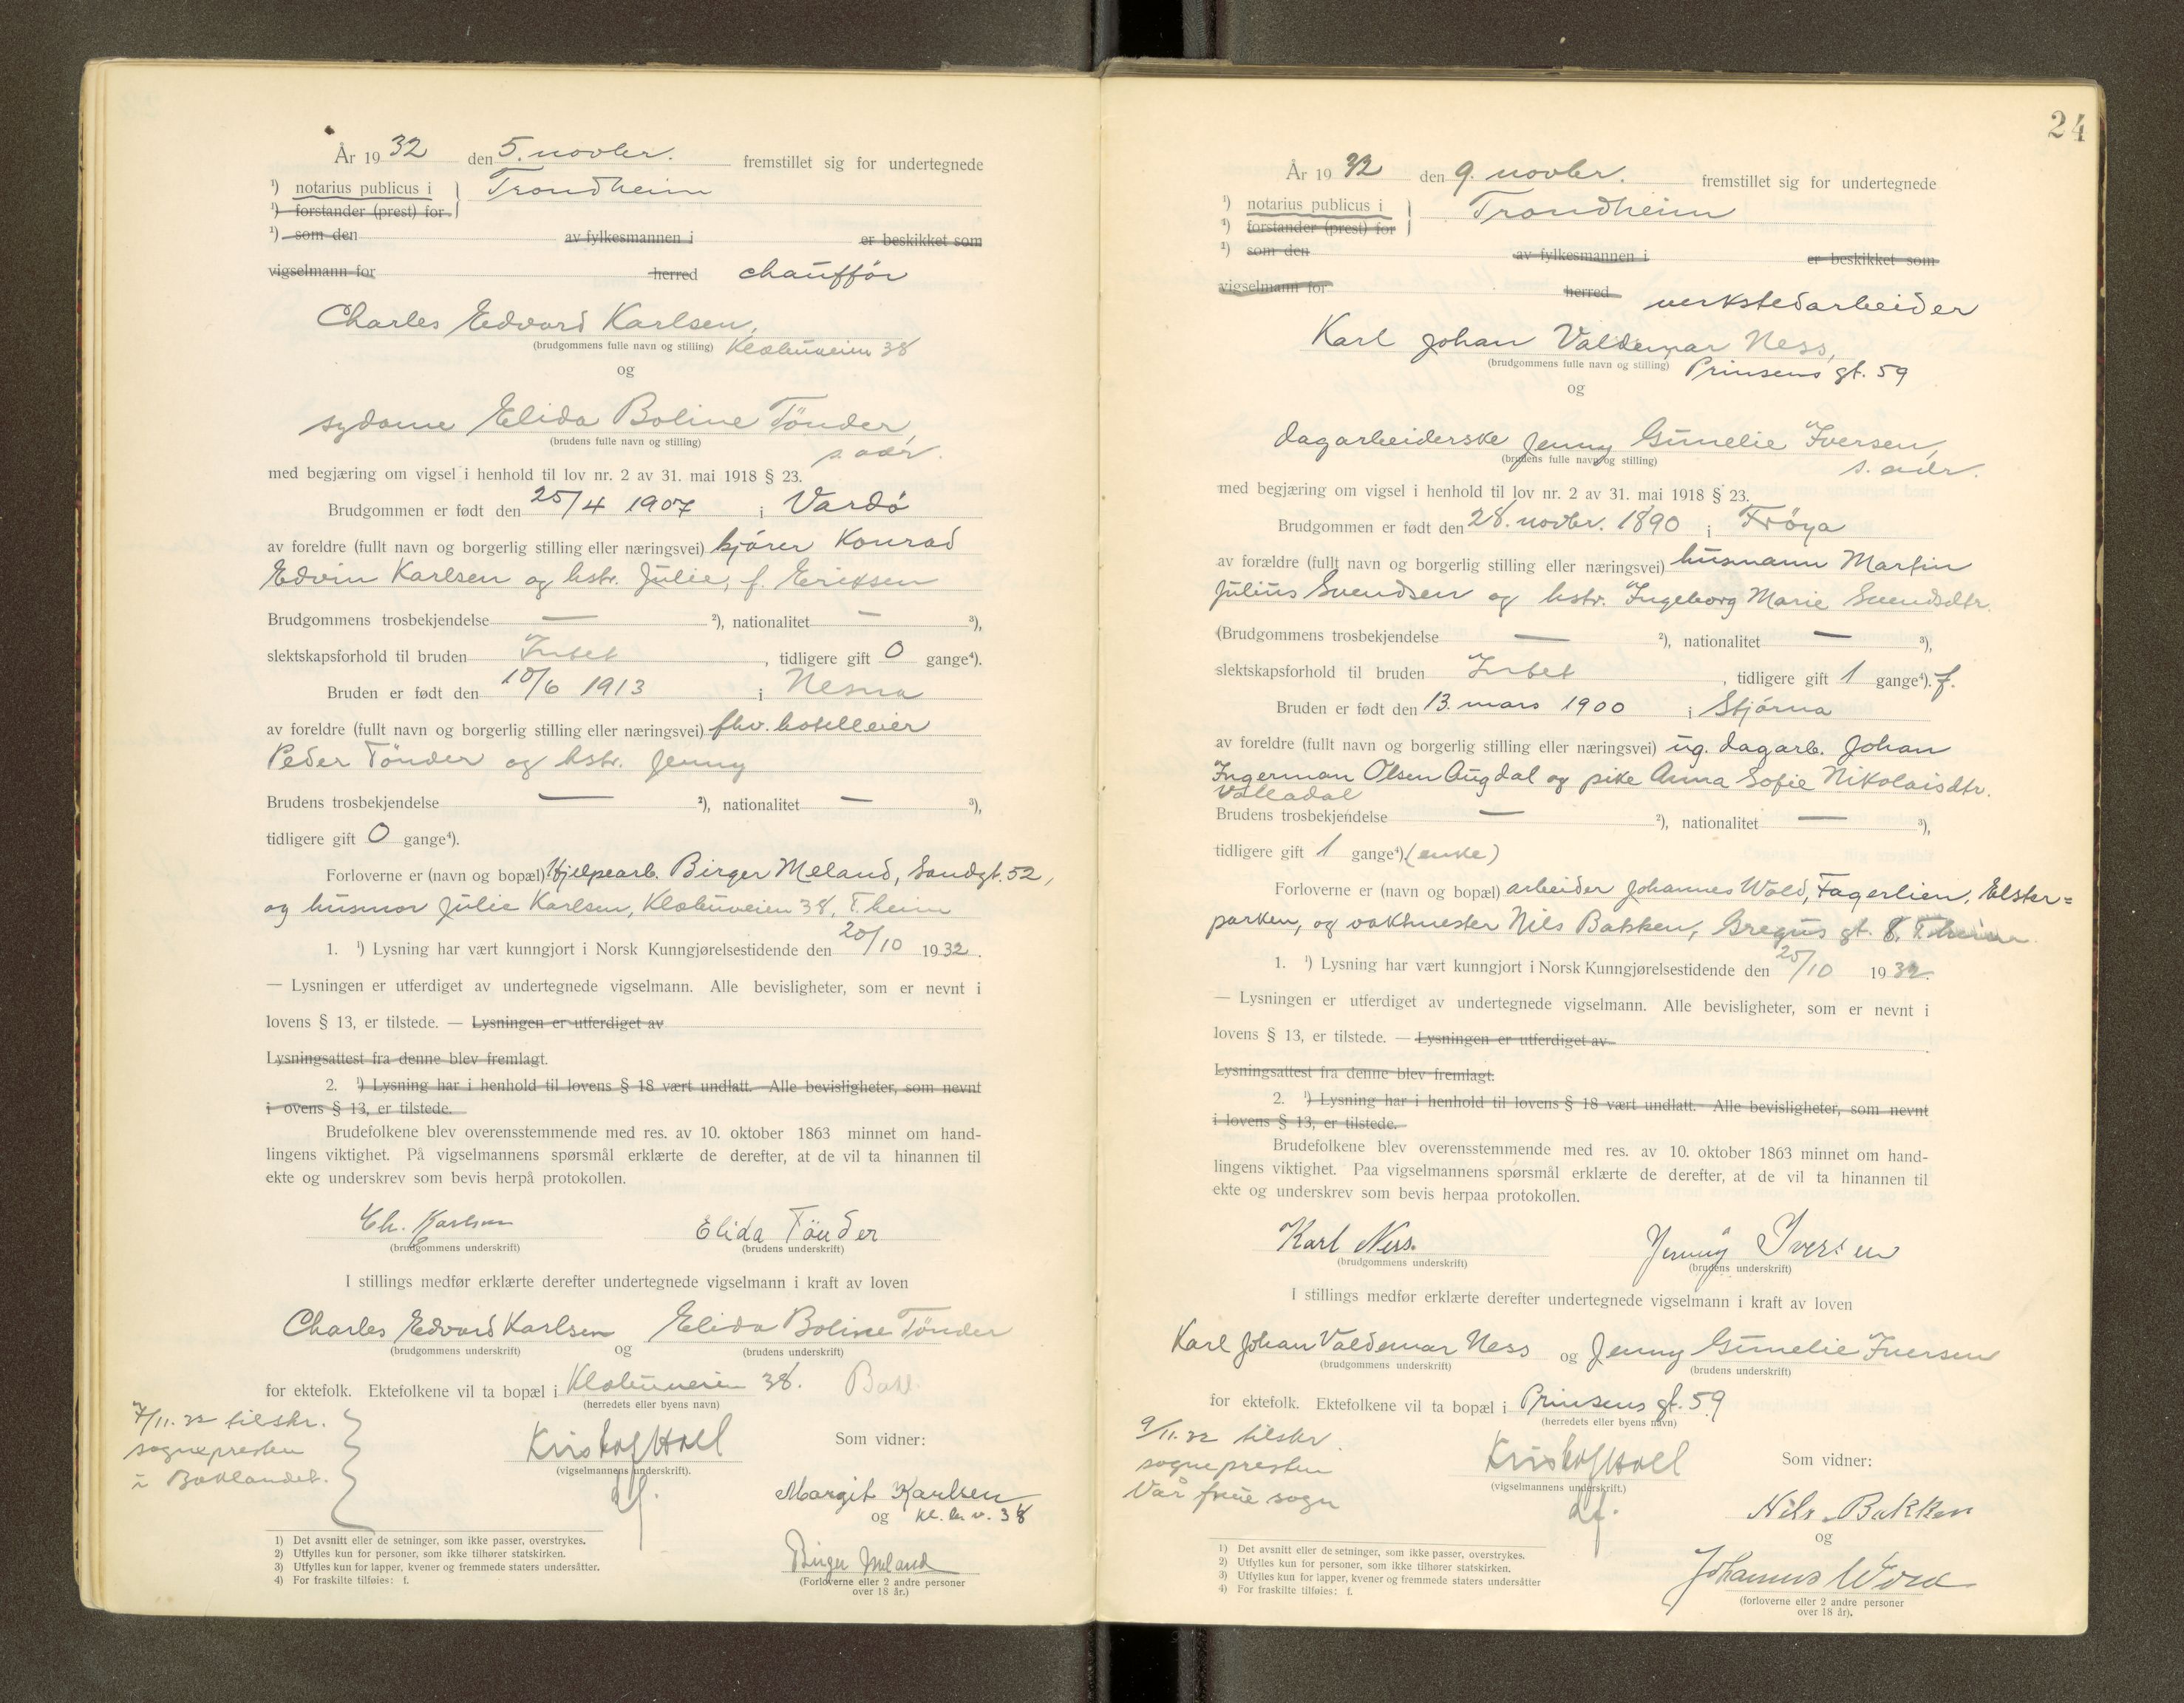 År 1932 den 5. novbr. fremstillet sig for undertegnede
¹) notarius publicus i } Trondheim
¹) forstander (prest) for
¹) som den av fylkesmannen i er beskikket som
vigselmann for herred chauffør
Charles Edvard Karlsen,
(brudgommens fulle navn og stilling) Klæbuveien 38
og
sydame Elida Boline Tönder,
(brudens fulle navn og stilling)
s. adr.
med begjæring om vigsel i henhold til lov nr. 2 av 31. mai 1918 § 23.
Brudgommen er født den 25/4 1907 i Vardö
av foreldre (fullt navn og borgerlig stilling eller næringsvei) kjörer Konrad
Edvin Karlsen og hstr. Julie, f. Eriksen
Brudgommens trosbekjendelse — ²), nationalitet — ³),
slektskapsforhold til bruden Intet, tidligere gift 0 gange⁴).
Bruden er født den 10/6 1913 i Nesna
av foreldre (fullt navn og borgerlig stilling eller næringsvei) fhv. hotelleier
Peder Tönder og hstr. Jenny
Brudens trosbekjendelse — ²), nationalitet — ³),
tidligere gift 0 gange⁴).
Forloverne er (navn og bopæl) Hjelpearb. Birger Meland, Sandgt. 52,
og husmor Julie Karlsen, Klæbuveien 38, T.heim
1. ¹) Lysning har vært kunngjort i Norsk Kunngjørelsestidende den 20/10 1932.
— Lysningen er utferdiget av undertegnede vigselmann. Alle bevisligheter, som er nevnt i
lovens § 13, er tilstede. — Lysningen er utferdiget av
Lysningsattest fra denne blev fremlagt.
2. ¹) Lysning har i henhold til lovens § 18 vært undlatt. Alle bevisligheter, som nevnt
i ovens § 13, er tilstede.
Brudefolkene blev overensstemmende med res. av 10. oktober 1863 minnet om hand-
lingens viktighet. På vigselmannens spørsmål erklærte de derefter, at de vil ta hinannen til
ekte og underskrev som bevis herpå protokollen.
Ch. Karlsen Elida Tönder
(brudgommens underskrift) (brudens underskrift)
I stillings medfør erklærte derefter undertegnede vigselmann i kraft av loven
Charles Edvard Karlsen og Elida Boline Tönder
(brudgommens underskrift) (brudens underskrift)
for ektefolk. Ektefolkene vil ta bopæl i Klæbuveien 38. Bakl.
(herredets eller byens navn)
7/11.32 tilskr.
sognepresten
i Baklandet.
Kristof Holl
(vigselmannens underskrift).
Som vidner:
Margit Karlsen
og Kl. b. v. 38
Birger Meland
(Forloverne eller 2 andre personer
over 18 år.)
1) Det avsnitt eller de setninger, som ikke passer, overstrykes.
2) Utfylles kun for personer, som ikke tilhører statskirken.
3) Utfylles kun for lapper, kvener og fremmede staters undersåtter.
4) For fraskilte tilføies: f.
24
År 1932 den 9. novbr. fremstillet sig for undertegnede
¹) notarius publicus i } Trondheim
¹) forstander (prest) for
¹) som den av fylkesmannen i er beskikket som
vigselmann for herred verkstedarbeider
Karl Johan Valdemar Ness,
(brudgommens fulle navn og stilling) Prinsens gt. 59
og
dagarbeiderske Jenny Gunelie Iversen,
(brudens fulle navn og stilling)
s. adr.
med begjæring om vigsel i henhold til lov nr. 2 av 31. mai 1918 § 23.
Brudgommen er født den 28. novbr. 1890 i Fröya
av forældre (fullt navn og borgerlig stilling eller næringsvei) husmann Martin
Julius Svendsen og hstr. Ingeborg Marie Svendsdtr.
(Brudgommens trosbekjendelse — ²), nationalitet — ³),
slektskapsforhold til bruden Intet, tidligere gift 1 gange⁴). f.
Bruden er født den 13. mars 1900 i Stjörna
av foreldre (fullt navn og borgerlig stilling eller næringsvei) ug. dagarb. Johan
Ingerman Olsen Augdal og pike Anna Sofie Nikolaisdtr.
Valladal
Brudens trosbekjendelse — ²), nationalitet — ³),
tidligere gift 1 gange⁴). (enke)
Forloverne er (navn og bopæl) arbeider Johannes Wold, Fagerlien, Elster=
parken, og vaktmester Nils Bakken, Gregus gt. 8, T.heim.
1. ¹) Lysning har vært kunngjort i Norsk Kunngjørelsestidende den 25/10 1932.
— Lysningen er utferdiget av undertegnede vigselmann. Alle bevisligheter, som er nevnt i
lovens § 13, er tilstede. — Lysningen er utferdiget av
Lysningsattest fra denne blev fremlagt.
2. ¹) Lysning har i henhold til lovens § 18 vært undlatt. Alle bevisligheter, som nevnt
i lovens § 13, er tilstede.
Brudefolkene blev overensstemmende med res. av 10. oktober 1863 minnet om hand-
lingens viktighet. Paa vigselmannens spørsmål erklærte de derefter, at de vil ta hinannen til
ekte og underskrev som bevis herpaa protokollen.
Karl Ness. Jenny Iversen
(brudgommens underskrift) (brudens underskrift)
I stillings medfør erklærte derefter undertegnede vigselmann i kraft av loven
Karl Johan Valdemar Ness og Jenny Gunelie Iversen
(brudgommens underskrift) (brudens underskrift)
for ektefolk. Ektefolkene vil ta bopæl i Prinsens gt. 59
(herredets eller byens navn)
9/11.32 tilskr.
sognepresten
Vår frue sogn
Kristof Holl
(vigselmannens underskrift.)
Som vidner:
Nils Bakken
og
Johannes Wold
(forloverne eller 2 andre personer
over 18 år).
1) Det avsnitt eller de setninger, som ikke passer, overstrykes.
2) Utfylles kun for personer, som ikke tilhører statskirken.
3) Utfylles kun for lapper, kvener og fremmede staters undersåtter
4) For fraskilte tilføies: f.